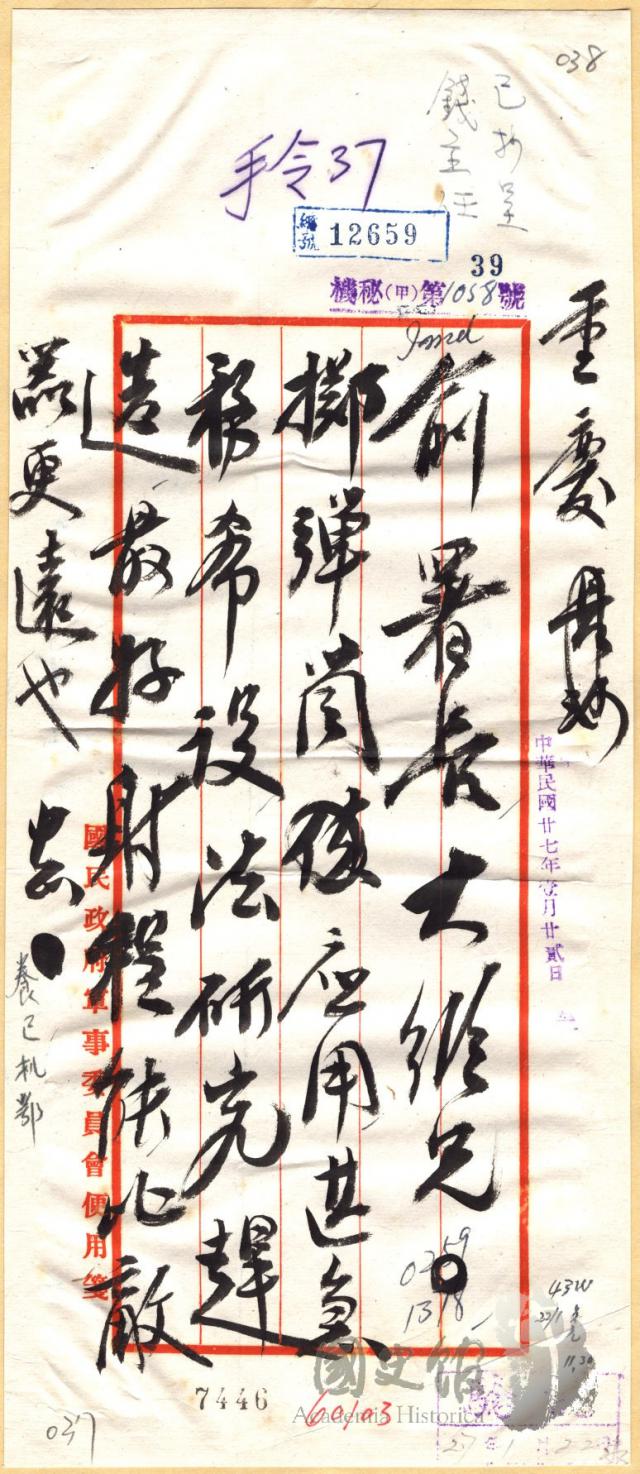 038
已抄呈
錢主任
手令37
總號 12659
39
機秘(甲)第1058號
重慶
俞署長大維兄
擲彈筒應用甚急
務希設法研究趕
造最好射程能比敵
器更遠也
中華民國廿七年壹月廿貳日
國民政府軍事委員會便用箋
養己机鄂
43W
22/1
11.30
7446
60103
國史館
Academia Historica
037
27 1 22